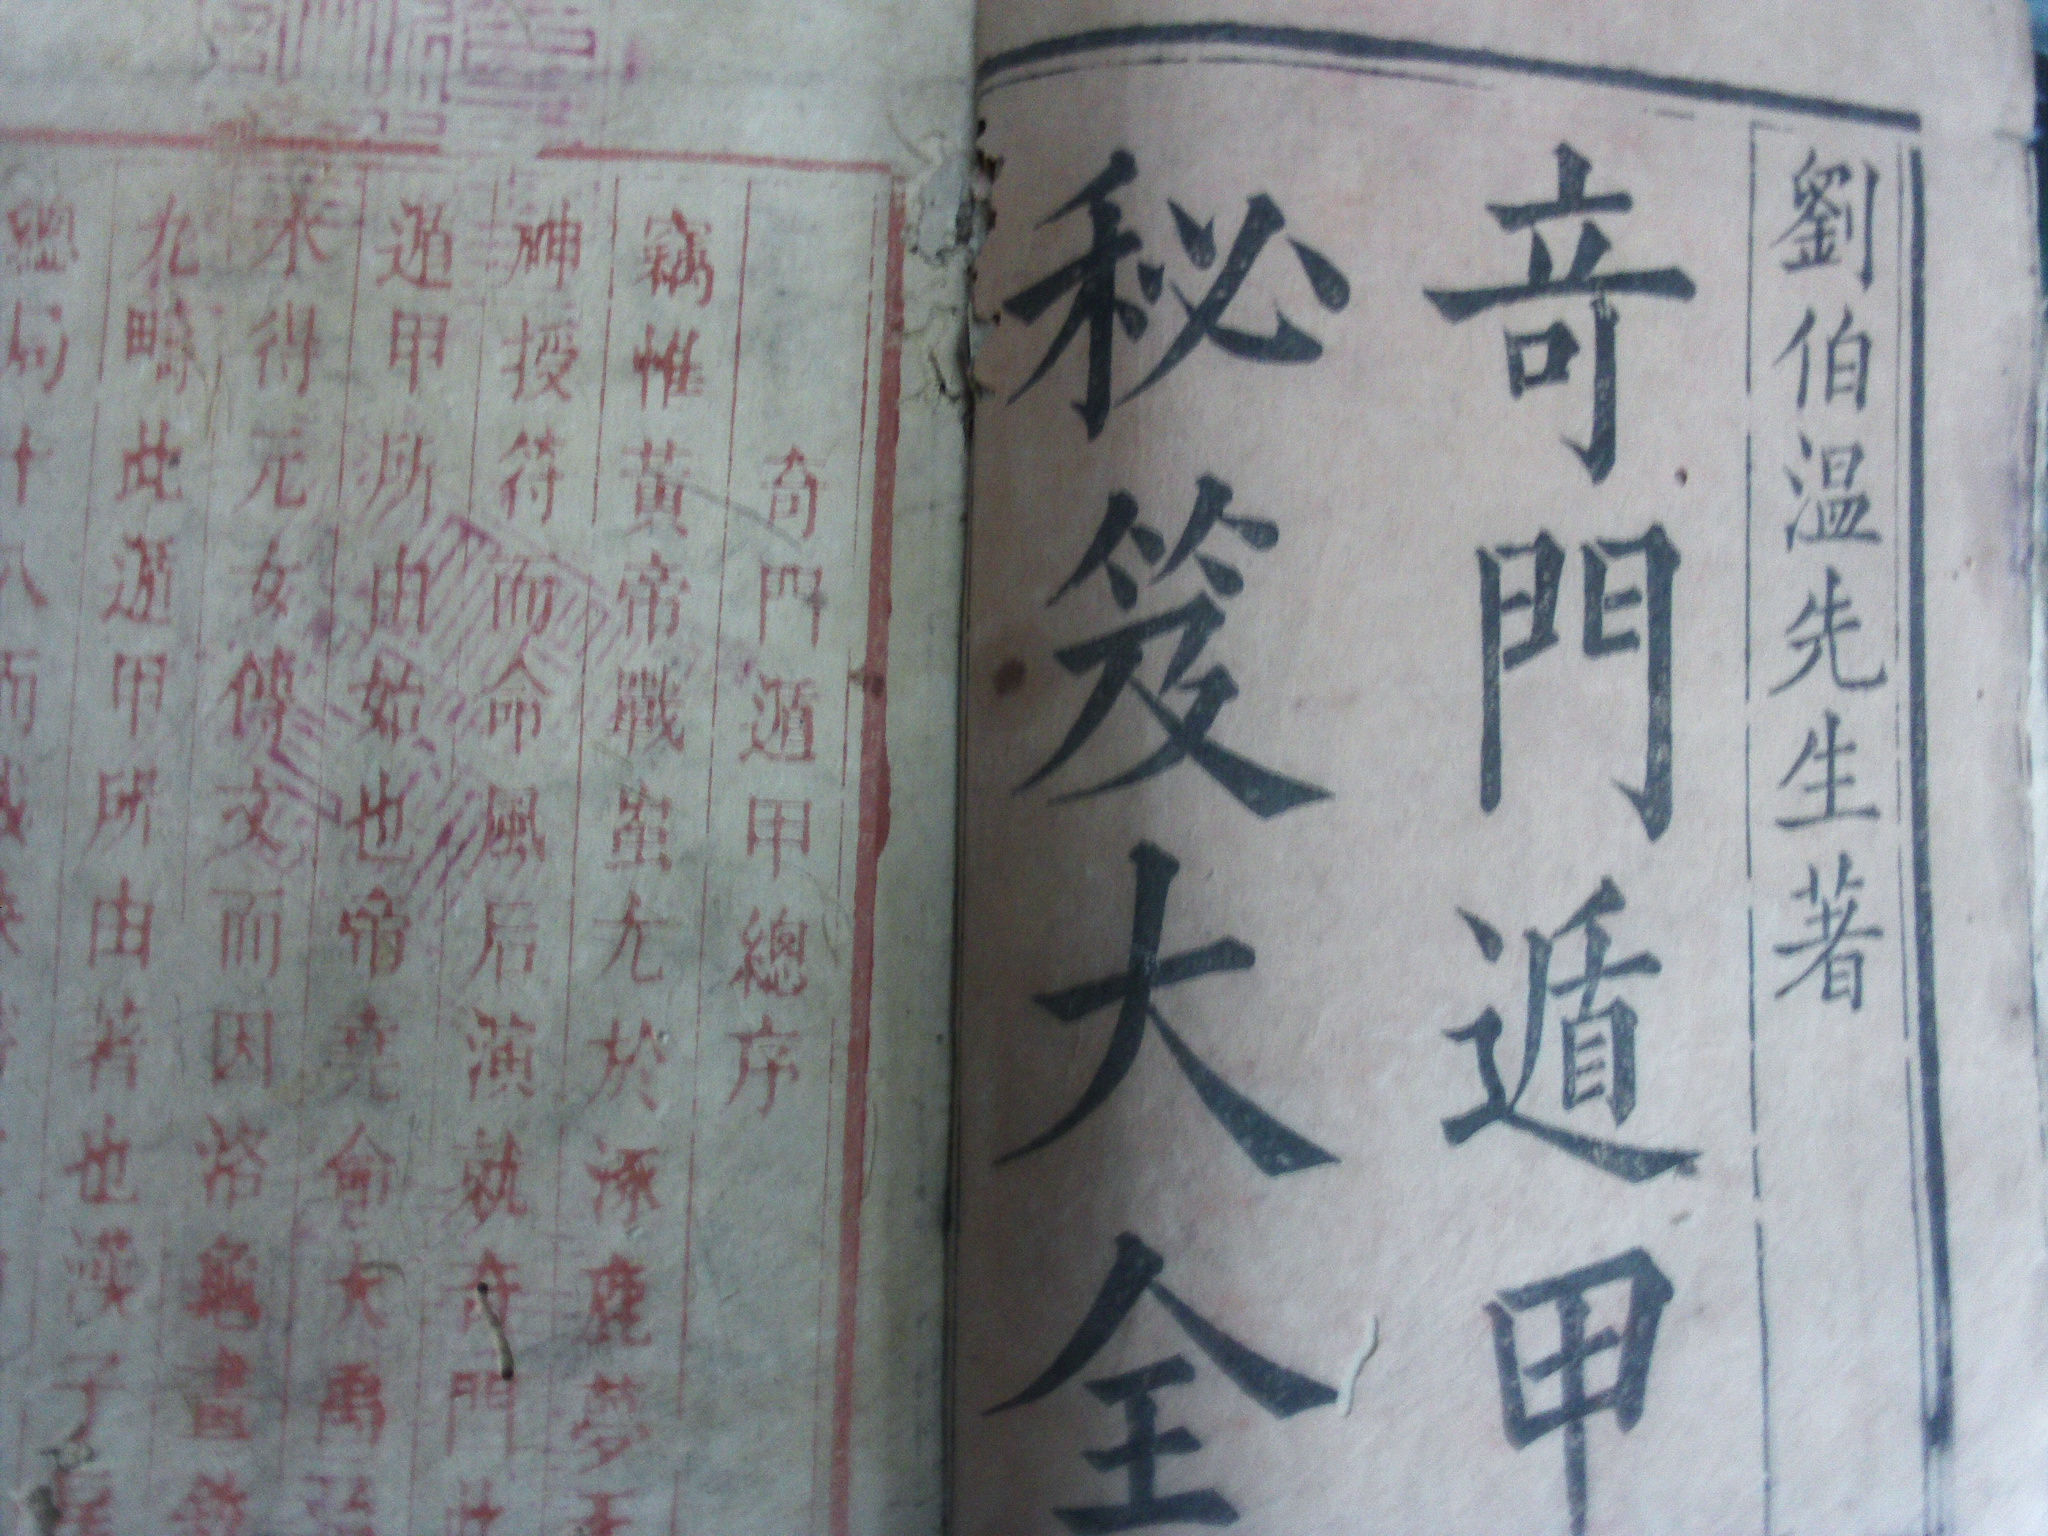 劉伯溫先生著
奇門遁甲
秘笈大全
奇門遁甲總序
竊惟黃帝戰蚩尤於涿鹿夢天
神授符而命風后演就奇門此
遁甲所由始也帝堯命大禹治
水得元女傳文而因洛龜畫敘
九疇此遁甲所由著也漢子房
總局十八而